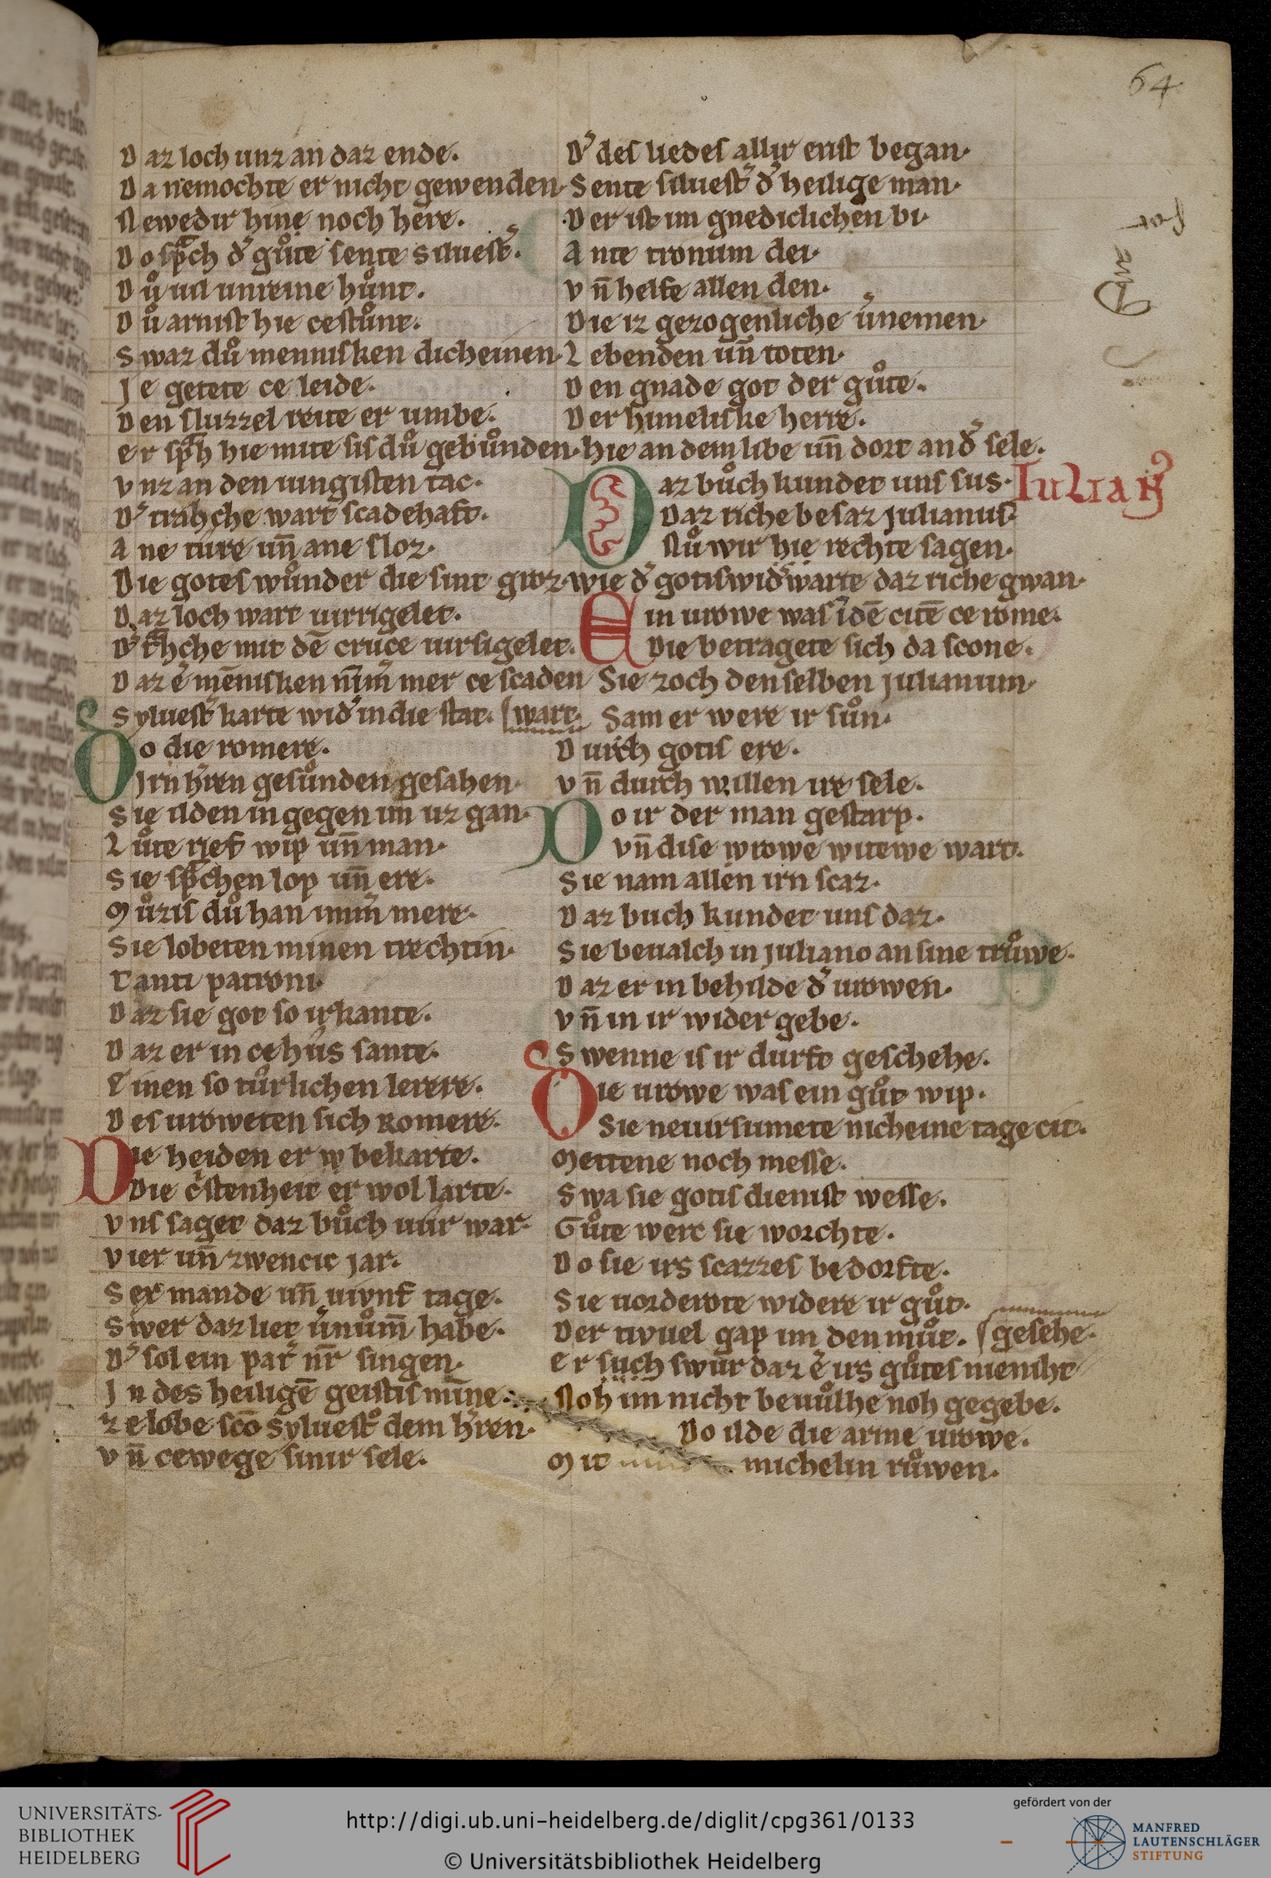 64
Daz loch unz an daz ende.
Da nemochte er nicht gewenden.
Newedir hine noch here.
Do sp̄ch d' gůte sente Siluest'.
Dů uil unreine hůnt.
Dů arnist hie cestůnt.
Swaz dů mennisken dicheinen.
Je getete ce leide.
Den sluzzel reite er umbe.
er sp̄h hie mite sis dů gebůnden.
vnz an den iungisten tac.
D' trahche wart scadehaft.
Ane ture un̄ ane sloz.
Die gotes wůnder die sint groz.
Daz loch wart uirrigelet.
D' t̄hche mit dē cruce uirsigelet.
Daz e' mēnisken nīm' mer ce scaden
Syluest' karte wid' in die stat. [wart.
Do die romere.
Irn h'ren gesůnden gesahen.
Sie ilden in gegen im uz gan.
Lůte rief wip un̄ man.
Sie sp̄chen lop un̄ ere.
Můzis dů han imm' mere.
Sie lobeten minen trechtin.
Tanti patroni.
Daz sie got so irkante.
Daz er in ce hůs sante.
Einen so tůrlichen lerere.
Des uroweten sich Romere.
Die heiden er w bekarte.
Die c'stenheit er wol larte.
vns saget daz bůch uůr war.
vier un̄ zwencic jar.
Sex mande un̄ uiunf tage.
Swer daz liet u'nům̄ habe.
D' sol ein pat' nr̄ singen.
In des heiligē geistis mīne.
ze lobe sc̄o Syluest'o dem h'ren.
vn̄ cewege sinir sele.
D' des liedes allir erist began.
Sente siluest' d' heilige man.
Der ist im gnediclichen bi.
Ante tronum dei.
vn̄ helfe allen den.
Die iz gezogenliche u'nemen.
Lebenden un̄ toten.
Den gnade got der gůte.
Der himeliske herre.
hie an dem libe un̄ dort an d' sele.
Daz bůch kundet uns sus.
Iulian9
Daz riche besaz Julianus.
Nů wir hie rechte sagen.
wie d' gotis wid'warte daz riche gwan.
Ein urowe was ī dē citē ce rome.
Die betragete sich da scone.
Sie zoch den selben Julianum.
Sam er were ir sůn.
Durch gotis ere.
vn̄ durch willen ire sele.
Do ir der man gestarp.
vn̄ dise wrowe witewe wart.
Sie nam allen irn scaz.
Daz buch kundet uns daz.
Sie beualch in Juliano an sine trůwe.
Daz er in behilde d' urowen.
vn̄ in ir wider gebe.
Swenne is ir durft geschehe.
Die urowe was ein gůt wip.
Sie neuirsumete nicheine tagecit.
Mettene noch messe.
Swa sie gotis dienist wesse.
Gůte werc sie worchte.
Do sie irs scazzes bedorfte.
Sie uorderote widere ir gůt.
Der tivuel gap im den můt. [gesehe.
er such swur daz e' irs gůtes nieniht
Noh im nicht beuůlhe noh gegebe.
Do ilde die arme urowe.
Mit michelin růwen.
UNIVERSITÄTS-
BIBLIOTHEK
HEIDELBERG
http://digi.ub.uni-heidelberg.de/diglit/cpg361/0133
© Universitätsbibliothek Heidelberg
gefördert von der
MANFRED
LAUTENSCHLÄGER
STIFTUNG